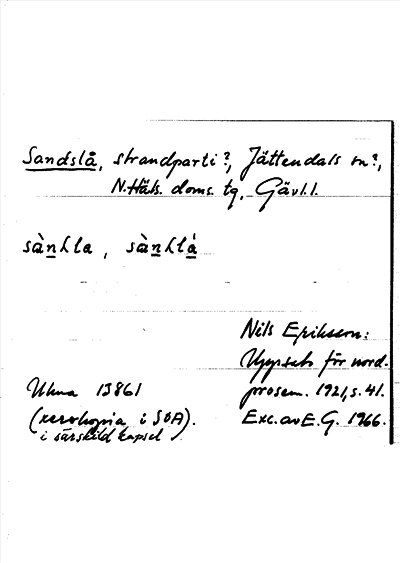 Sandslå, strandparti?, Jättendals sn?,
N.Häls. doms. tg, Gävl.l.
sànLla, sànLlá
Nils Erikson:
Uppsats för nord.
prosem. 1921, s. 41.
Exc. av E.G. 1966.
Ulma 13861
(xerokopia i SOA).
i särskild kapsel